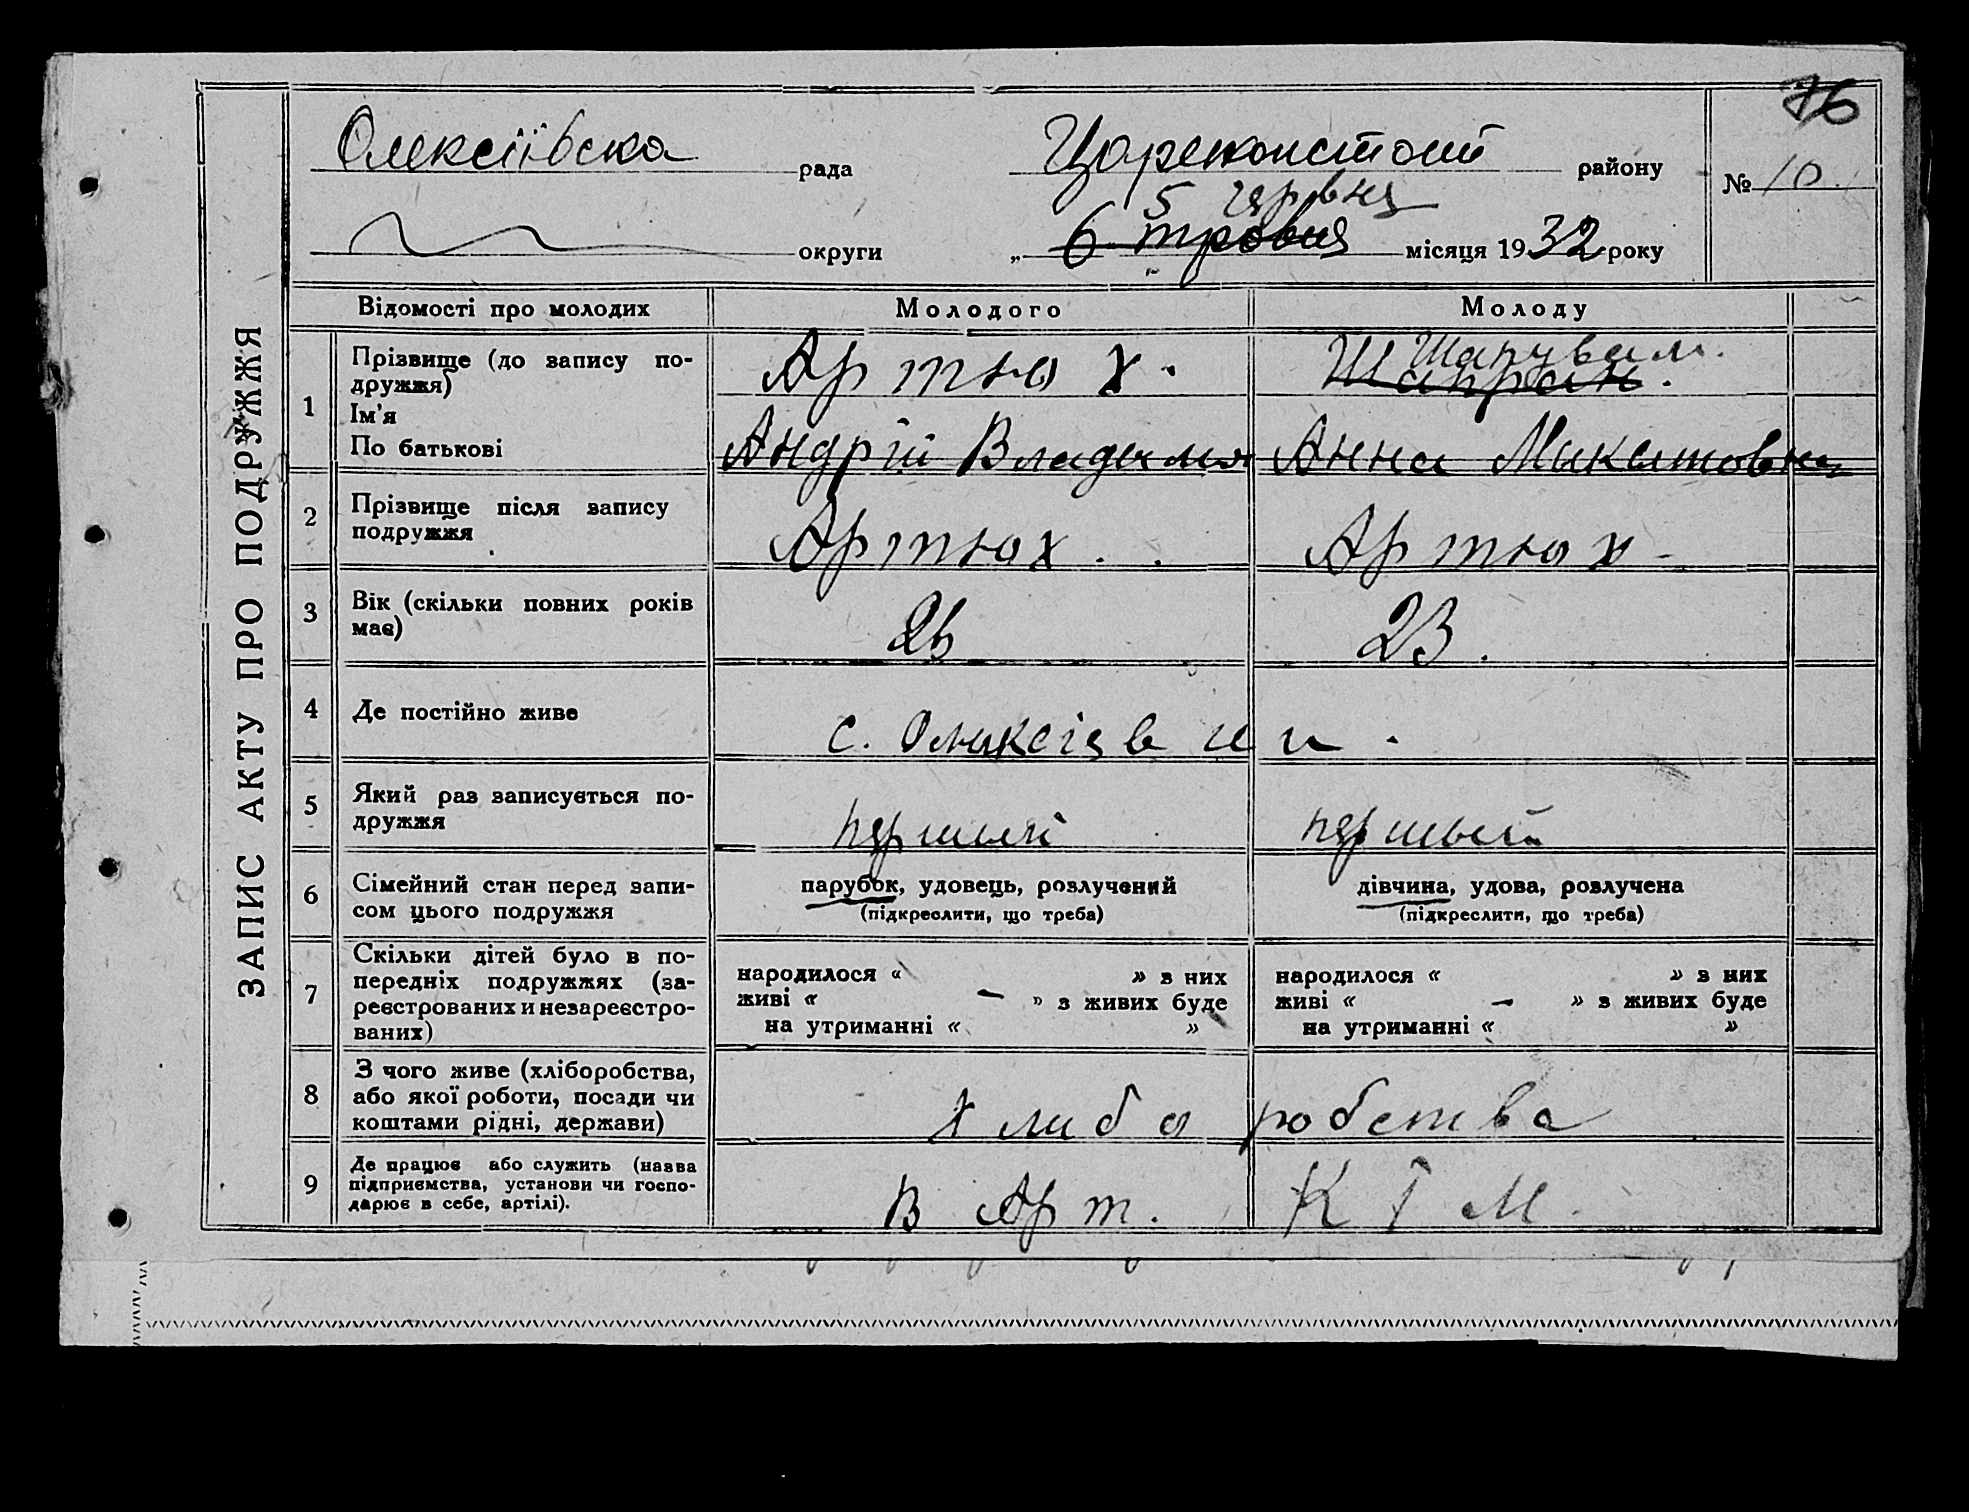 76
Олексіївска рада Цареконстант району № 10
5 червня
округи „ 6 травня місяця 1932 року
ЗАПИС АКТУ ПРО ПОДРУЖЖЯ
Відомості про молодих Молодого Молоду
1 Прізвище (до запису по-
дружжя)
Ім'я
По батькові
Артюх. Шаправ.
Андрій Владими Анна Микитовна
2 Прізвище після запису
подружжя
Артюх. Артюх
3 Вік (скільки повних років
має)
26 23.
4 Де постійно живе
5 Який раз записується по-
дружжя
перший першый
6 Сімейний стан перед запи-
сом цього подружжя
парубок, удовець, розлучений
(підкреслити, що треба)
дівчина, удова, розлучена
(підкреслити, що треба)
7 Скільки дітей було в по-
передніх подружжях (за-
реєстрованих и незареєстро-
ваних)
народилося « » з них
живі « — » з живих буде
на утриманні « »
народилося « » з них
живі « — » з живих буде
на утриманні « »
8 З чого живе (хліборобства,
або якої роботи, посади чи
коштами рідні, держави)
хлибо робства
9 Де працює або служить (назва
підприємства, установи чи госпо-
дарює в себе, артілі).
В Арт. К І М.